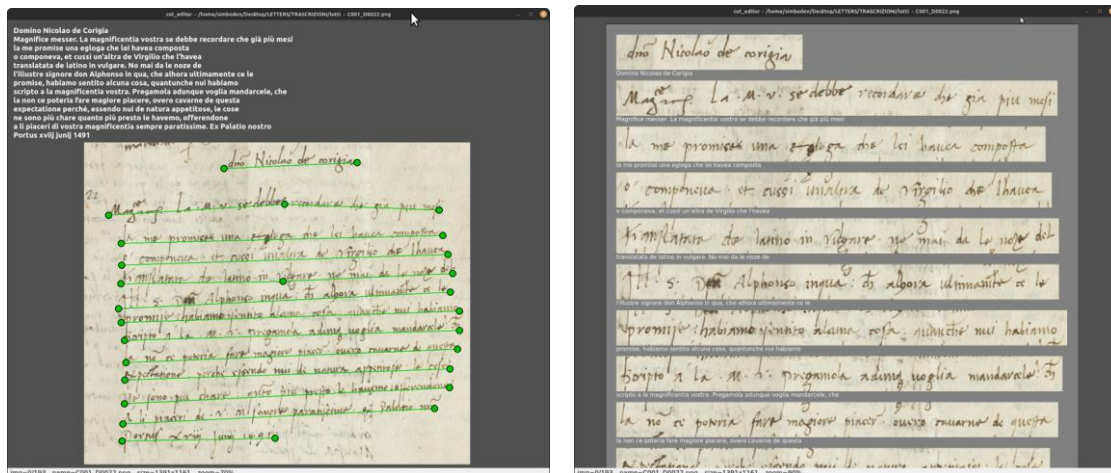 cut_editor - /home/simboden/Desktop/LETTERS/TRASCRIZIONI/lotti - C001_D0022.png
Domino Nicolao de Corigia
Magnifice messer. La magnificentia vostra se debbe recordare che già più mesi
la me promise una egloga che lei havea composta
o componeva, et cussi un'altra de Virgilio che l'havea
translatata de latino in vulgare. No mai da le noze de
l'illustre signore don Alphonso in qua, che alhora ultimamente ce le
promise, habiamo sentito alcuna cosa, quantunche nui habiamo
scripto a la magnificentia vostra. Pregamola adunque voglia mandarcele, che
la non ce poteria fare magiore piacere, overo cavarne de questa
expectatione perchè, essendo nui de natura appetitose, le cose
ne sono più chare quanto più presto le havemo, offerendone
a li piaceri di vostra magnificentia sempre paratissime. Ex Palatio nostro
Portus xviij junij 1491
dno Nicolao de corigia
22
Mag.ce La .M. v. se debbe recordare che gia piu mesi
la me promise una egloga che lei havea composta
o componeua et cussi unaltra de Virgilio che lhauea
translatata de latino in vulgare no mai da le noze del
Ill. S. Don Alphonso inqua ch alhora ultimamte ce le
promise habiamo sentito alcuna cosa quanche nui habiamo
scripto a la .M. v. pregamola adunq voglia mandarcele ch
la no ce poteria fare magiore piacer ouero cauarne de questa
img=0/193 name=C001_D0022.png size=1391x1161 zoom=70%
cut_editor - /home/simboden/Desktop/LETTERS/TRASCRIZIONI/lotti - C001_D0022.png
dno Nicolao de corigia
Domino Nicolao de Corigia
Mag.ce La .M. v. se debbe recordare che gia piu mesi
Magnifice messer. La magnificentia vostra se debbe recordare che già più mesi
la me promise una egloga che lei havea composta
la me promise una egloga che lei havea composta
o componeua et cussi unaltra de Virgilio che lhauea
o componeva, et cussi un'altra de Virgilio che l'havea
translatata de latino in vulgare no mai da le noze del
translatata de latino in vulgare. No mai da le noze de
Ill. S. Don Alphonso inqua ch alhora ultimamte ce le
l'illustre signore don Alphonso in qua, che alhora ultimamente ce le
promise habiamo sentito alcuna cosa quanche nui habiamo
promise, habiamo sentito alcuna cosa, quantunche nui habiamo
scripto a la .M. v. pregamola adunq voglia mandarcele ch
scripto a la magnificentia vostra. Pregamola adunque voglia mandarcele, che
la no ce poteria fare magiore piacer ouero cauarne de questa
la non ce poteria fare magiore piacere, overo cavarne de questa
img=0/193 name=C001_D0022.png size=1391x1161 zoom=90%